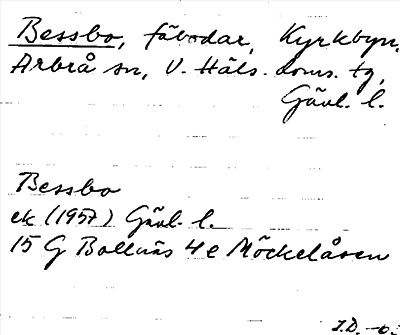 Bessbo, fäbodar, Kyrkbyn,
Arbrå sn, V. Häls. doms. tg,
Gävl. l.
Bessbo
ek (1957) Gävl. l.
15 G Bollnäs 4 e Möckelåsen
J.D. -63